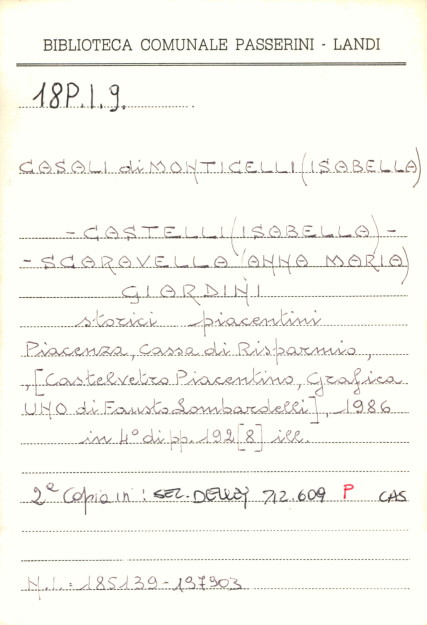 BIBLIOTECA COMUNALE PASSERINI - LANDI
18P.I.9.
CASALI di MONTICELLI (ISABELLA)
- CASTELLI (ISABELLA) -
- SCARAVELLA (ANNA MARIA)
GIARDINI
storici piacentini
Piacenza, Cassa di Risparmio,
,[Castelvetro Piacentino, Grafica
UNO di Fausto Lombardelli], 1986
in 4° di pp. 192 [8] ill.
2ª Copia in : SEZ. 712.609 P CAS
N.I.: 185139-197903